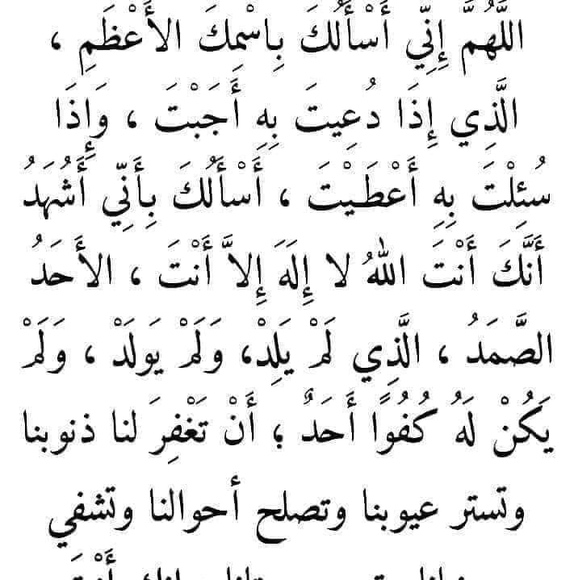 اللَّهُمَّ إِنِّي أَسْأَلُكَ بِاسْمِكَ الأَعْظَمِ ،
الَّذِي إِذَا دُعِيتَ بِهِ أَجَبْتَ ، وَإِذَا
سُئِلْتَ بِهِ أَعْطَيْتَ ، أَسْأَلُكَ بِأَنِّي أَشْهَدُ
أَنَّكَ أَنْتَ اللهُ لا إِلَهَ إِلاَّ أَنْتَ ، الأَحَدُ
الصَّمَدُ ، الَّذِي لَمْ يَلِدْ، وَلَمْ يَولَدْ ، وَلَمْ
يَكُنْ لَهُ كُفُوًا أَحَدٌ ؛ أَنْ تَغْفِرَ لنا ذنوبنا
وتستر عيوبنا وتصلح أحوالنا وتشفي